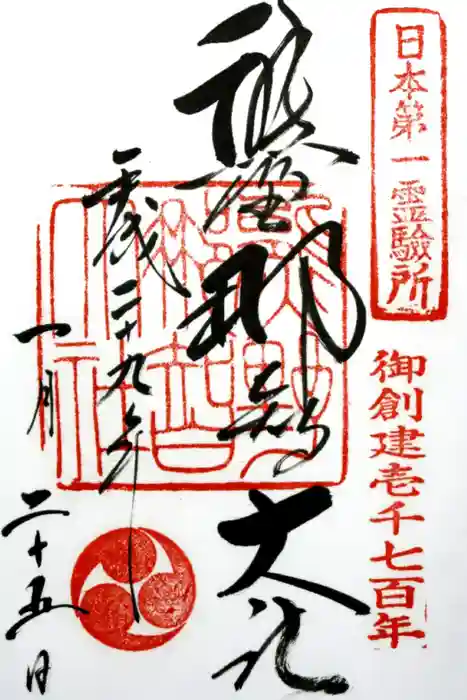 日本第一霊驗所
御創建壱千七百年
熊野那智大社
平成二十九年
一月二十五日